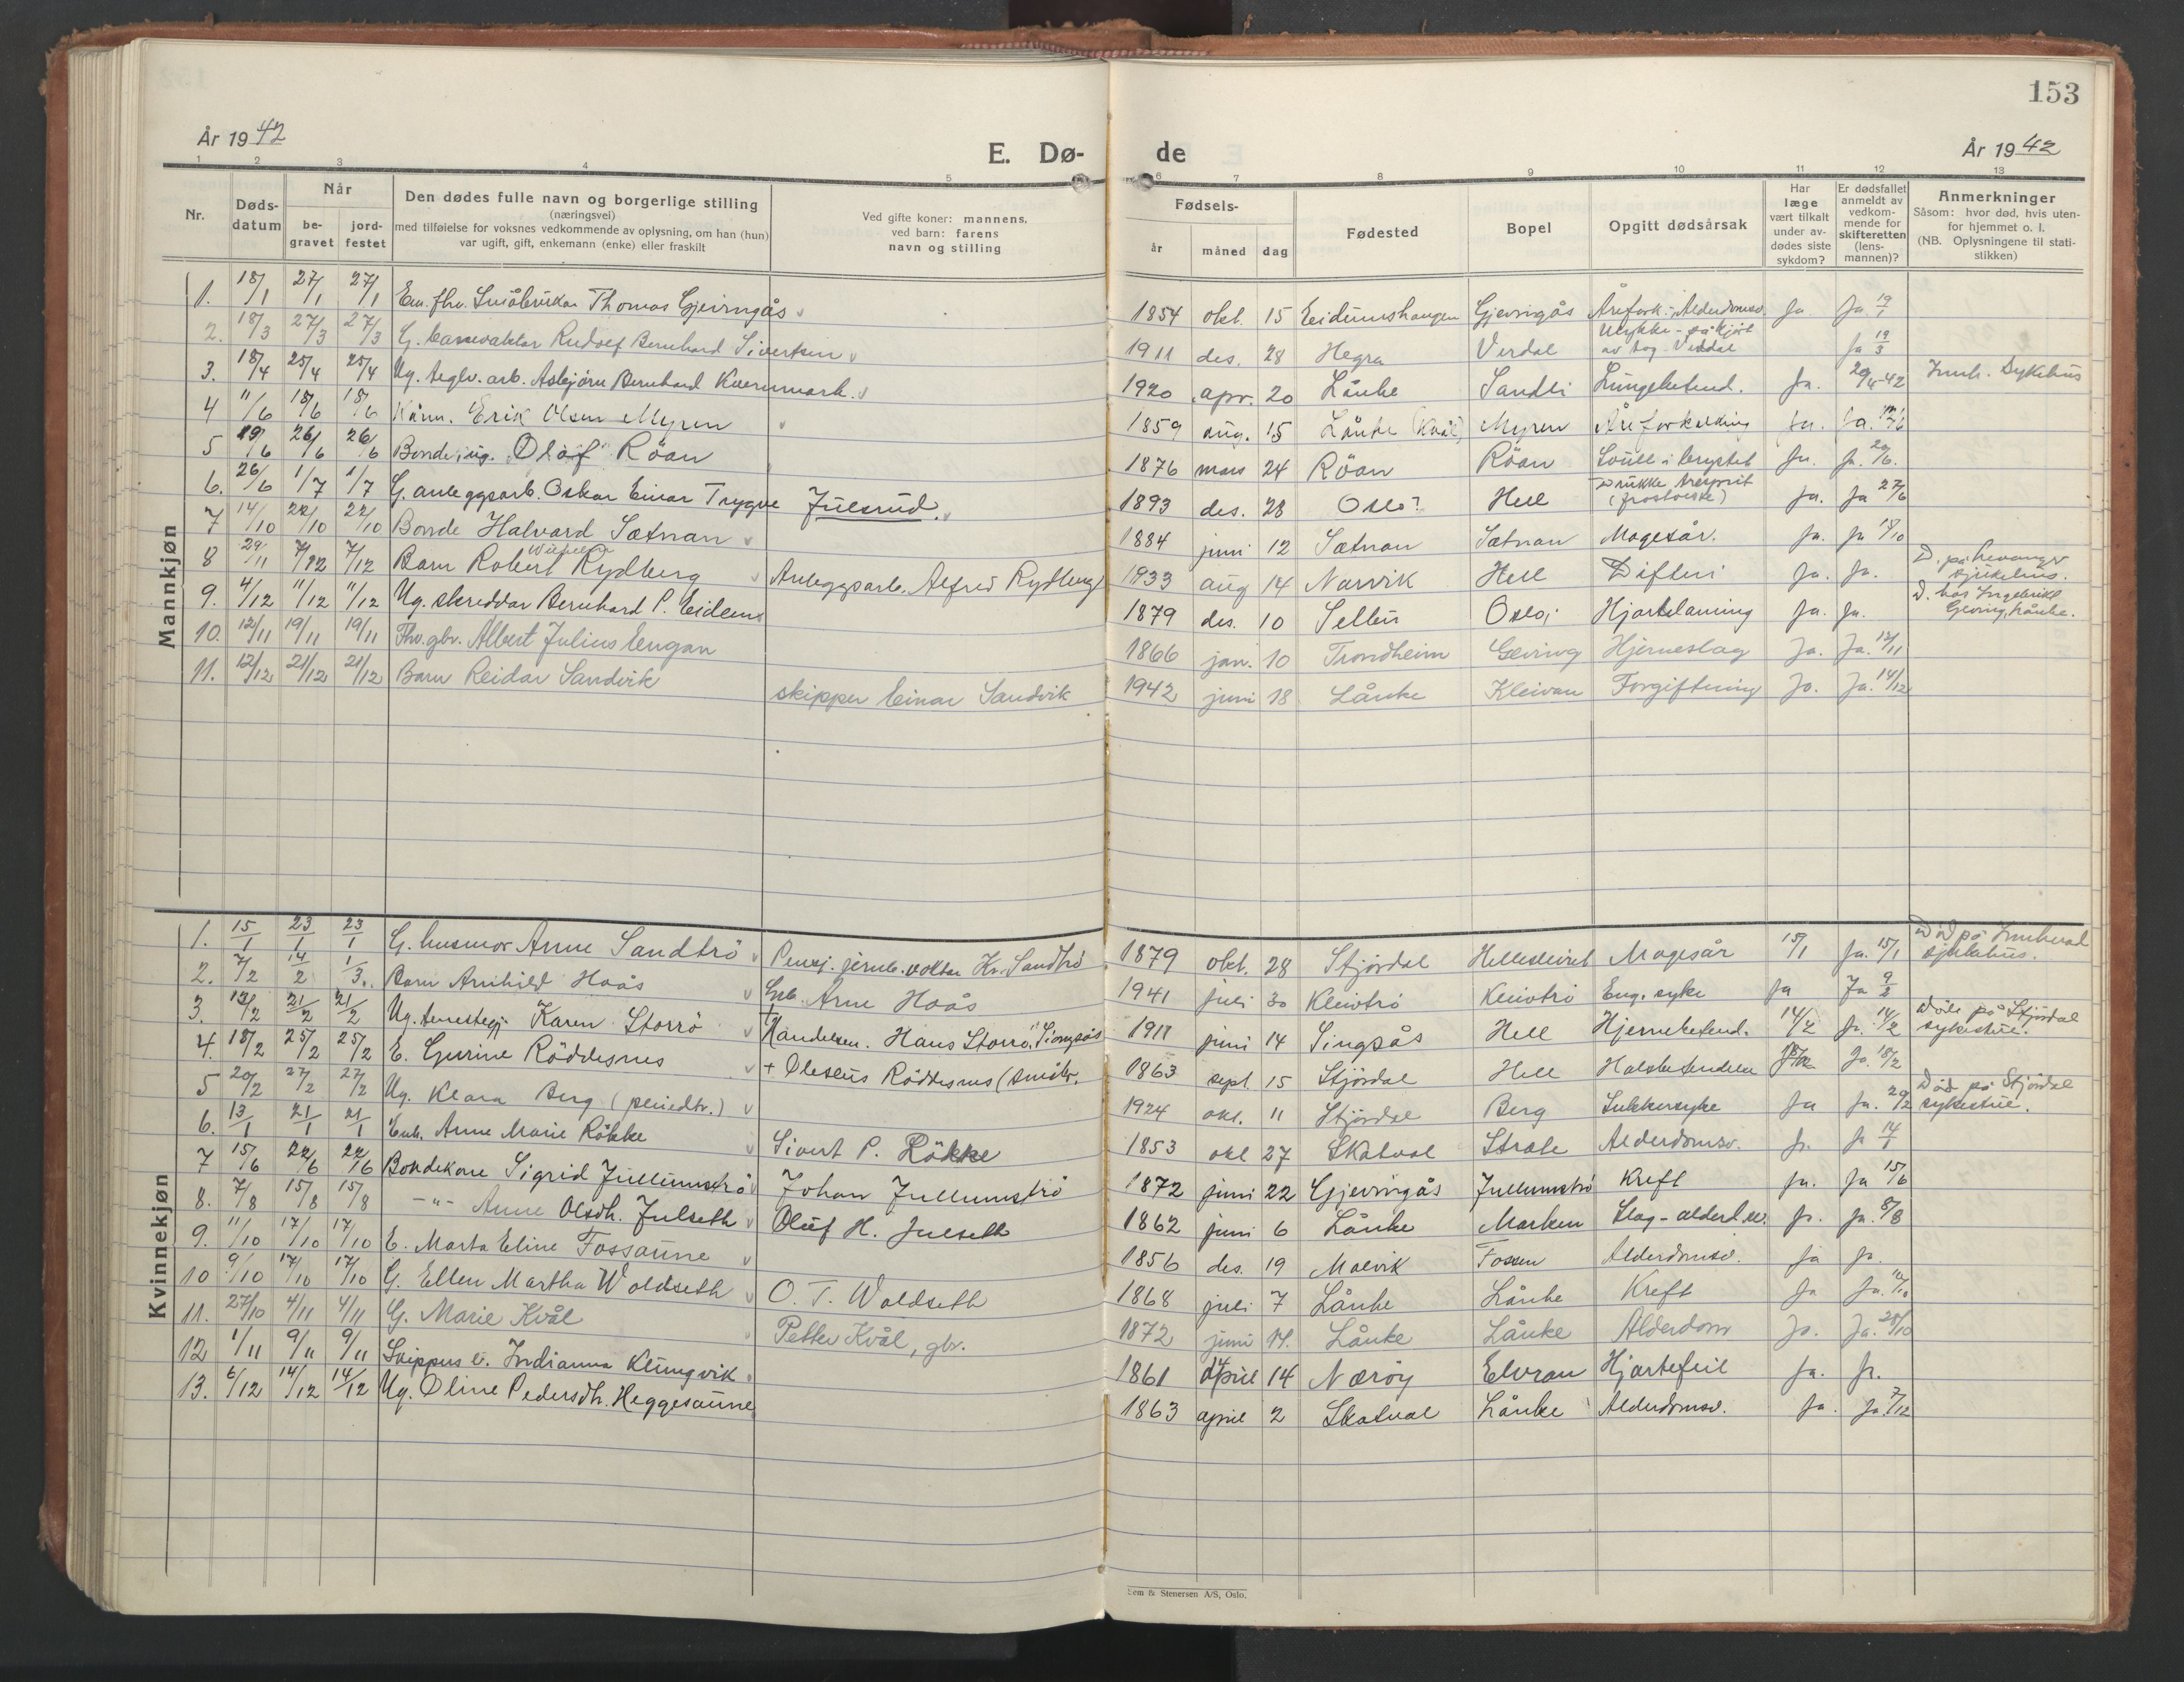 153
År 1942
E. Dø-
de
År 1942
1 2 3 4 5 6 7 8 9 10 11 12 13
Nr.
Døds-
datum
Når
be-
gravet
jord-
festet
Den dødes fulle navn og borgerlige stilling
(næringsvei)
med tilføielse for voksnes vedkommende av oplysning, om han (hun)
var ugift, gift, enkemann (enke) eller fraskilt
Ved gifte koner: mannens,
ved barn: farens
navn og stilling
Fødsels-
år måned dag
Fødested
Bopel
Opgitt dødsårsak
Har
læge
vært tilkalt
under av-
dødes siste
sykdom?
Er dødsfallet
anmeldt av
vedkom-
mende for
skifteretten
(lens-
mannen)?
Anmerkninger
Såsom: hvor død, hvis uten-
for hjemmet o. l.
(NB. Oplysningene til stati-
stikken)
Mannkjøn
1. 18/1 27/1 27/1 Em. fhv. Småbruker Thomas Gjevingås 1854 okt. 15 Eidumshaugen Gjevingås Årefork.-Alderdomsv. Ja. Ja 19/1
2. 18/3 27/3 27/3 G. Rudolf Bernhard Sivertsen 1911 des. 28 Hegra Verdal Ulykke - påkjørt av tog Verdal Ja 19/3
3. 18/4 25/4 25/4 Ug. teglv. arb. Asbjörn Bernhard Kvernmark. 1920 apr. 20 Lånke Sandli Lungebetend. Ja. 29/4-42 Innh. Sykehus
4 11/6 18/6 18/6 Kårm. Erik Olsen Myren 1859 aug. 15 Lånke (Kvål) Myren Åreforkalkning Ja. Ja.
5 19/6 26/6 26/6 Bonde, ug. Olaf Röan 1876 mars 24 Röan Röan Svull i brystet Ja. Ja.
6. 26/6 1/7 1/7 G. anleggsarb. Oskar Einar Trygve Julsrud. 1893 des. 28 Oslo? Hell Drukke tresprit (frostveske) Ja. Ja 27/6
7 14/10 22/10 22/10 Bonde Halvard Sætnan 1884 juni 12 Sætnan Sætnan Magesår. Ja. Ja 18/10
8 29/11 7/12 7/12 Barn Robert Wilhelm Rydberg Anleggsarb. Alfred Rydberg 1933 aug 14 Narvik Hell Difteri Ja. Ja. D. på Levanger sjukehus.
9. 4/12 11/12 11/12 Ug. skreddar Bernhard P. Eidem 1879 des. 10 Selbu Oslo, Hjartelaming Ja. Ja. D. hos Ingebrikt Geving, Lånke.
10. 12/11 19/11 19/11 Fhv. gbr. Albert Julius Engan 1866 jan. 10 Trondheim Geving Hjerneslag Ja. Ja. 12/11
11. 12/12 21/12 21/12 Barn Reidar Sandvik skipper Einar Sandvik 1942 juni 18 Lånke Kleivan Forgiftning Ja. Ja. 14/12
Kvinnekjøn
1. 15/1 23/1 23/1 G. husmor Anne Sandtrö Pensj. jernb.vokter Kr. Sandtrö 1879 okt. 28 Stjördal Hellekleivet Magesår 15/1 Ja. 15/1 Död på Innherad sjukehus.
2. 7/2 14/2 1/3. Barn Arnhild Haås Gbr. Arne Haås 1941 juli 30 Kleivtrö Kleivtrö Eng. syke Ja Ja 9/2
3. 13/2 21/2 21/2 Ug. tenestegj. Karen Storrö + Handelsm. Hans Storrö, Singsås 1911 juni 14 Singsås Hell Hjernebetend. 14/2 Ja. 14/2 Döde på Stjördal sykestue.
4. 18/2 25/2 25/2 E. Gurine Röddesnes + Oleseus Röddesnes (småbr. 1863 sept. 15 Stjördal Hell Halsbetendelse Ja. 18/2
5 20/2 27/2 27/2 Ug. Klara Berg (pleiedtr.) 1924 okt. 11 Stjördal Berg Sukkersyke Ja Ja. Död på Stjördal sykestue.
6. 13/1 21/1 21/1 Enk. Anne Marie Rökke Sivert P. Rökke 1853 okt 27 Skatval Strate Alderdomsv. Ja. Ja 14/1
7 15/6 22/6 22/6 Bondekone Sigrid Jullumströ Johan Jullumströ 1872 juni 22 Gjevingås Jullumströ Kreft Ja. Ja 15/6
8. 7/8 15/8 15/8 -"- Anne Olsdh. Julseth Oluf H. Julseth 1862 juni 6 Lånke Marken Slag - alderd.sv. Ja. Ja. 8/8
9. 11/10 17/10 17/10 E. Marta Eline Fossaune 1856 des. 19 Malvik Fossen Alderdomsv. Ja Ja.
10 9/10 17/10 17/10 G. Ellen Martha Woldseth O. T. Woldseth 1868 juli 7 Lånke Lånke Kreft Ja Ja.
11. 27/10 4/11 4/11 G. Marie Kvål Petter Kvål, gbr. 1872 juni 14. Lånke Lånke Alderdom Ja. Ja.
12 1/11 9/11 9/11 Skippus e. Indianna Klungvik 1861 april 14 Næröy Elvran Hjartefeil Ja. Ja.
13. 6/12 14/12 14/12 Ug. Oline Pedersdh. Heggesaune 1863 april 2 Skatval Lånke Alderdomsv. Ja. Ja. 7/12
Sem & Stenersen A/S, Oslo.